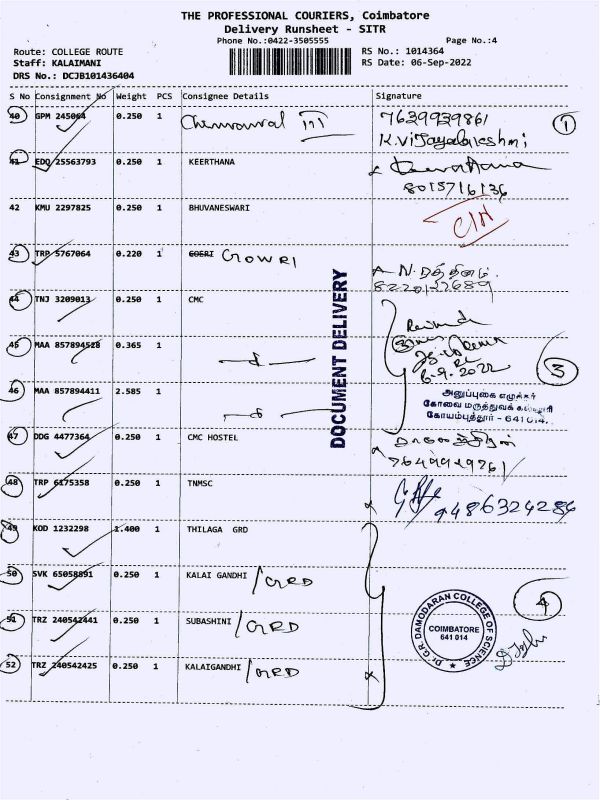 THE PROFESSIONAL COURIERS, Coimbatore
Delivery Runsheet - SITR
Phone No.:0422-3505555 Page No.:4
Route: COLLEGE ROUTE RS No.: 1014364
Staff: KALAIMANI RS Date: 06-Sep-2022
DRS No.: DCJB101436404
S No Consignment No Weight PCS Consignee Details Signature
40 GPM 245064 0.250 1 7639939861
K.Vijayalakshmi
1
41 EDQ 25563793 0.250 1 KEERTHANA Keerthana
8015716136
42 KMU 2297825 0.250 1 BHUVANESWARI
43 TRP 5767064 0.220 1 GOERI GOWRI
44 TNJ 3209013 0.250 1 CMC
45 MAA 857894528 0.365 1
6.9.2022
3
46 MAA 857894411 2.585 1
அனுப்புகை எழுத்தர்
கோவை மருத்துவக் கல்லூரி
கோயம்புத்தூர் - 641 014.
DOCUMENT DELIVERY
47 DDG 4477364 0.250 1 CMC HOSTEL
48 TRP 6175358 0.250 1 TNMSC 9486324286
49 KOD 1232298 1.400 1 THILAGA GRD
50 SVK 65058891 0.250 1 KALAI GANDHI /GRD
4
51 TRZ 240542441 0.250 1 SUBASHINI /GRD
Dr. G.R. DAMODARAN COLLEGE OF SCIENCE
COIMBATORE
641 014
52 TRZ 240542425 0.250 1 KALAIGANDHI /GRD